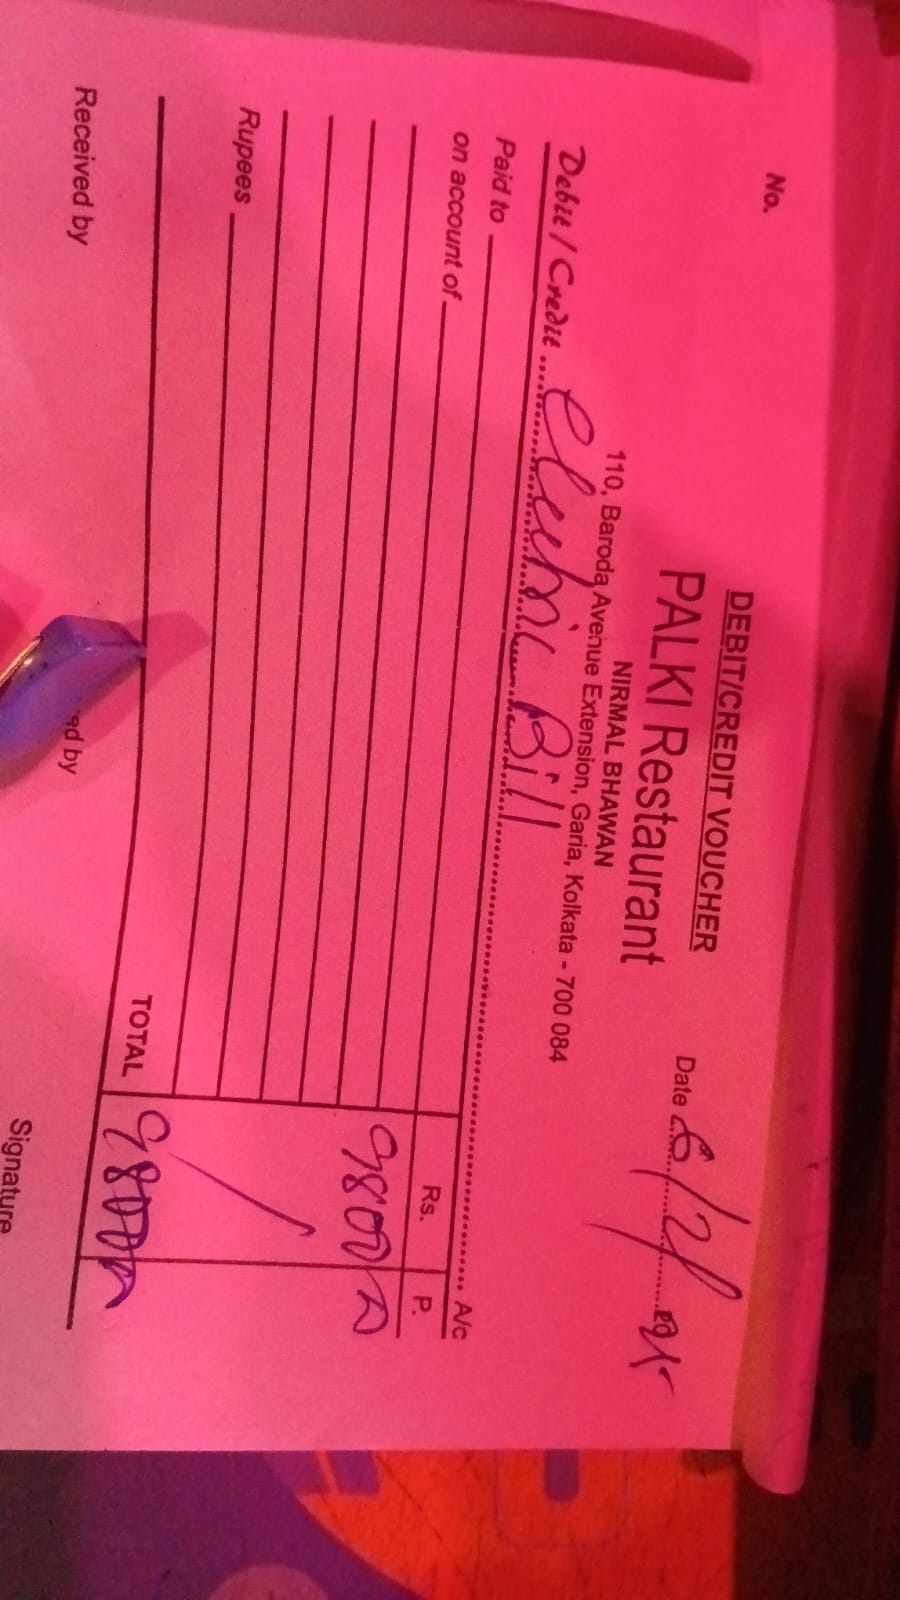 DEBIT/CREDIT VOUCHER
No.
PALKI Restaurant
NIRMAL BHAWAN
110, Baroda Avenue Extension, Garia, Kolkata - 700 084
Date 6/2/
Debit / Credit Electric Bill A/c
Paid to
on account of
Rs. P.
9800
Rupees
TOTAL 9800
Received by
ed by
Signature